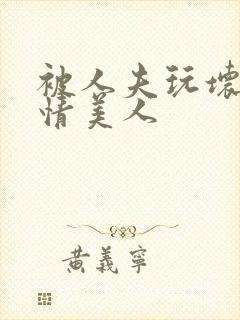 被人夫玩壞
情美人
黃義寧